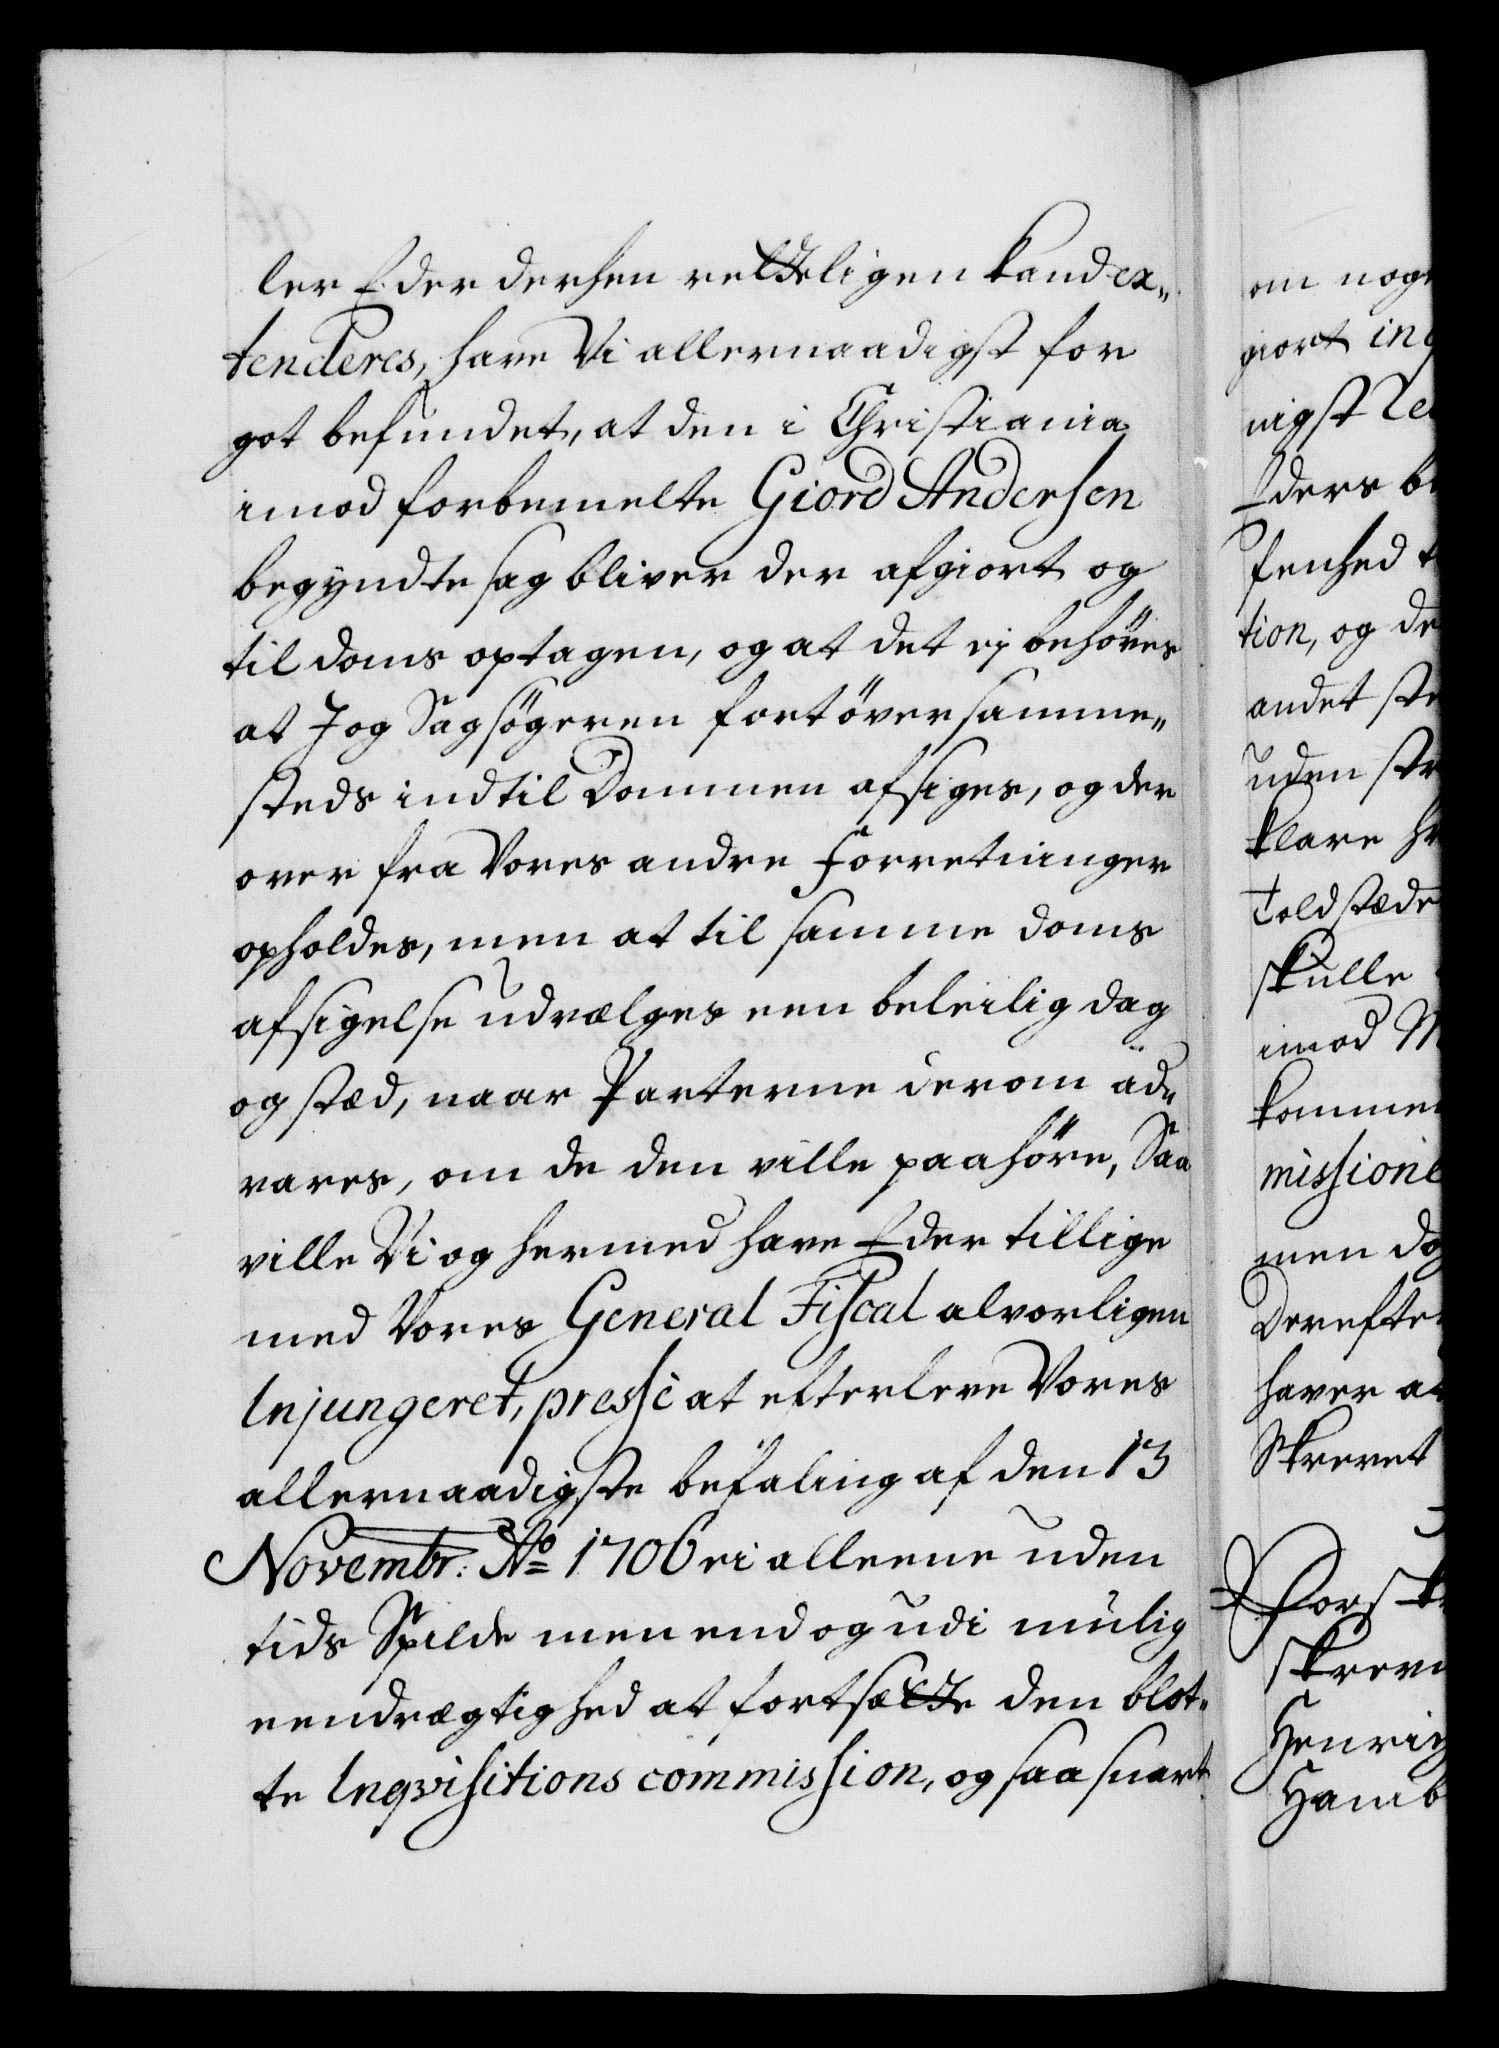 ler Eder derhen retteligen kand ex„
tenderes, have Vi allernaadigst for
got befundet, at den i Christiania
imod forbemelte Giord Andersen
begyndte sag bliver der afgiort og
til doms optagen, og at det ej behöves
at I og Sagsögeren fortöver samme„
steds indtil Dommen afsiges, og der
over fra Vores andre Forretninger
opholdes, men at til samme doms
afsigelse udvælges een beleilig dag
og stæd, naar Parterne derom ad„
vares, om de den ville paahöre, Saa
ville Vi og hermed have Eder tillige
med Vores General Fiscal alvorligen
Injungeret, pressè at efterleve Vores
allernaadigste befaling af den 13
Novembr: Aº 1706 ei alleene uden
tids Spilde men end og udi mulig
eendrægtighed at fortsætte den blot„
te Inqvisitions commission, og saa snart
om nog
giort in
nigst
Eders b
fenhed t
tion, og de
andet ste
uden str
klare h
Toldstæde
skulle
imod M
komme
missione
men dog
Derefter
haver a
Skrevet
Forsk
skrev
Henrig
Hamb